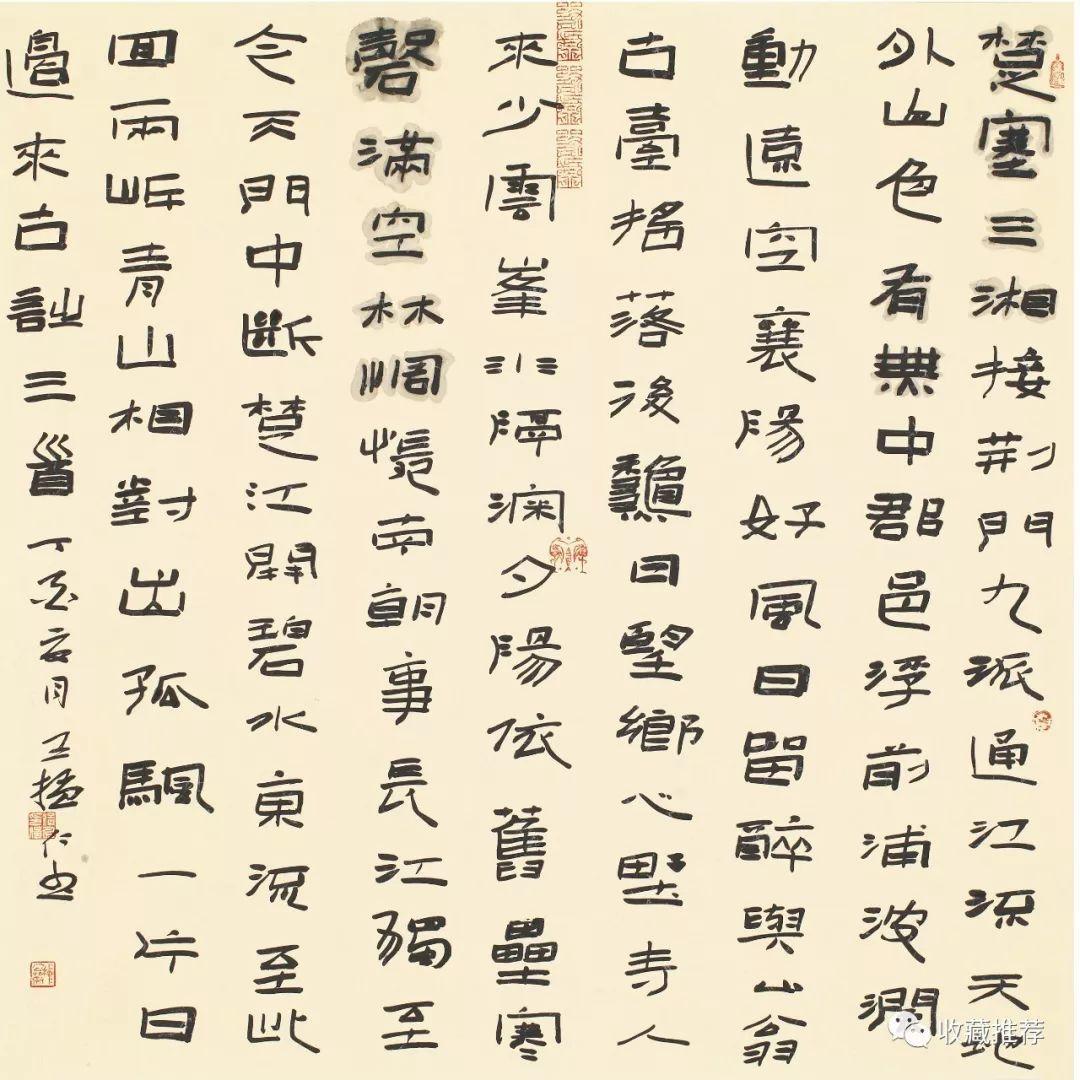 楚塞三湘接荆門九派通江流天地
外山色有無中郡邑浮前浦波瀾
動遠空襄陽好風日留醉與山翁
古臺搖落後龝日望鄉心野寺人
來少雲峯水隔深夕陽依舊壘寒
磬滿空林惆悵南朝事長江獨至
今天門中斷楚江開碧水東流至此
回兩岸青山相對出孤颿一片日
邊來古詩三首丁酉月王仁書
收藏推荐